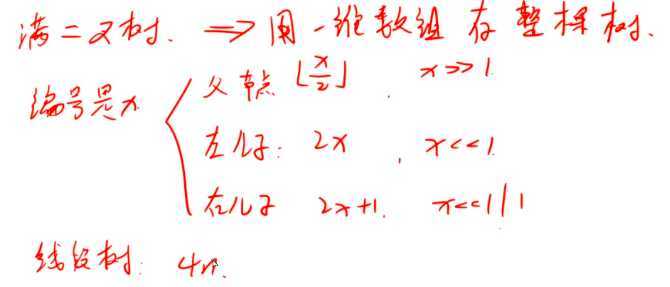 满二叉树. ⇒ 用一维数组存整棵树.
编号是x
父节点 ⌊x/2⌋ , x>>1
左儿子: 2x , x<<1
右儿子 2x+1. x<<1|1
线段树: 4n.